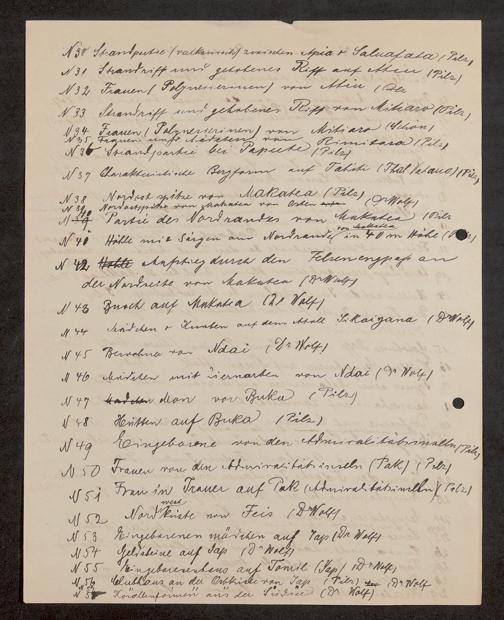 N 30 Strandpartie (vulkanisch) zwischen Apia & Saluafata (Pilz)
N 31 Strandriff und gehobenes Riff auf Atiu (Pilz)
N 32 Frauen (Polynesierinnen) von Atiu (Pilz
N 33 Strandriff und gehobenes Riff von Mitiaro (Pilz)
N 34 Frauen (Polynesierinnen) von Mitiaro (Schön)
N 35 Frauen und Mädchen von Rimitara (Pilz)
N 36 Strandpartie bei Papeete (Pilz)
N 37 Charakteristische Bergform auf Tahiti (Thal) (Pilz)
N 38 Nordost spitze von Makatea (Pilz)
N 39 Nordostspitze von Makatea von Osten (Dr Wolf)
N 40 Partie des Nordrandes von Makatea (Pilz
N 40 Höhle mit Särgen am Nordrande von Makatea in 40 m Höhe
N 42 Aufstieg durch den Felsenengpaß an
der Nordseite von Makatea (Dr Wolf)
N 43 Busch auf Makatea (Dr Wolf)
N 44 Mädchen & Knaben auf dem Atoll Sikaiana (Dr Wolf)
N 45 Bewohner von Ndai (Dr Wolf)
N 46 Mädchen mit Ziernarben von Ndai (Dr Wolf)
N 47 Mädchen von Buka (Pilz)
N 48 Hütten auf Buka (Pilz)
N 49 Eingeborene von den Admiralitätsinseln (Pilz)
N 50 Frauen von den Admiralitätsinseln (Pak) (Pilz)
N 51 Frau in Trauer auf Pak (Admiralitätsinseln) (Pilz)
N 52 Nordwestküste von Feis (Dr Wolf)
N 53 Eingeborenen mädchen auf Yap (Dr Wolf)
N 54 Geldsteine auf Yap (Dr Wolf)
N 55 Eingeborenenhaus auf Tomil (Yap) (Dr Wolf)
N 56 Clubhaus an der Ostküste von Yap (Pilz) (Dr Wolf
N 57 aus der Südsee (Dr Wolf)